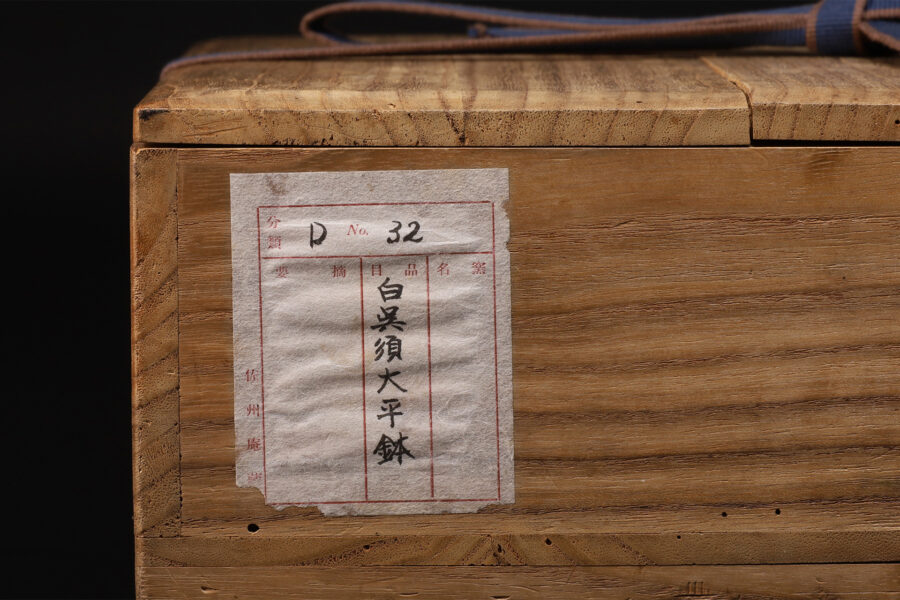 分類 D No. 32
窯名
品目
摘要
白呉須大平鉢
佐州庵